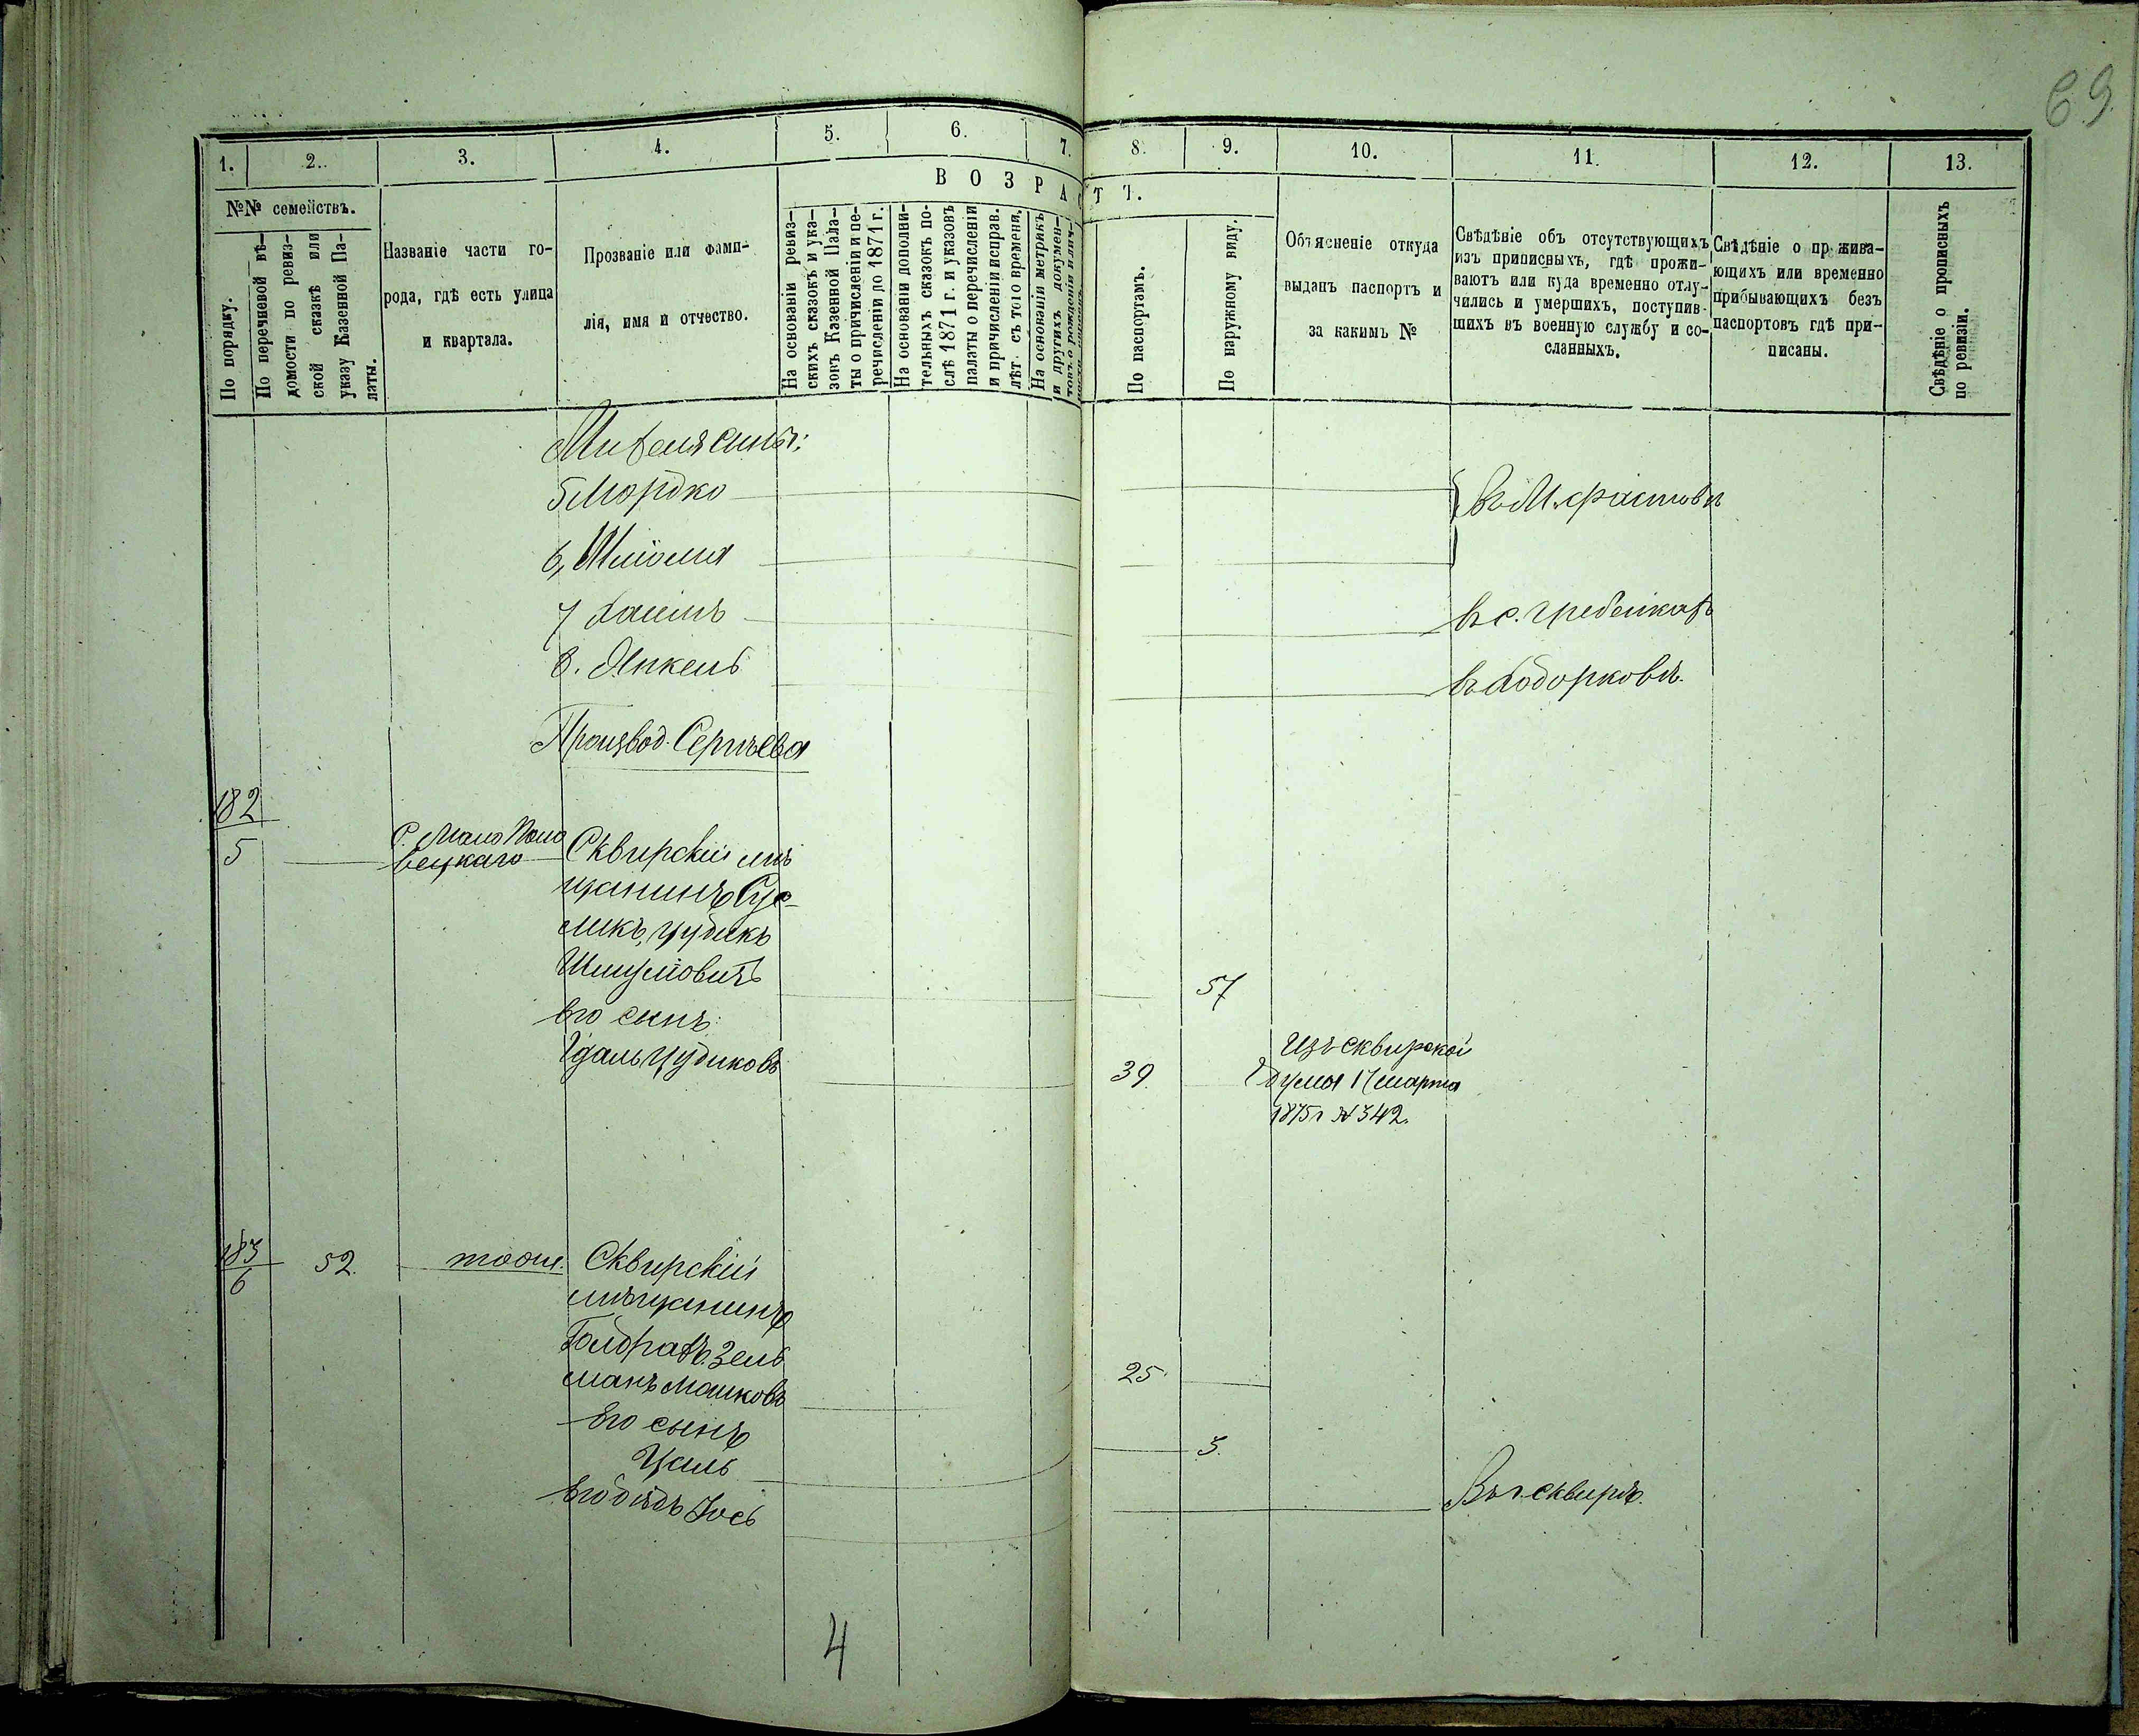 69
1.
2.
3.
4.
5.
6.
7.
8.
9.
10.
11.
12.
13.
№№ семействъ.
По порядку.
По перечневой вѣ-
домости по ревиз-
ской сказкѣ или
указу Казенной Па-
латы.
Названіе части го-
рода, гдѣ есть улица
и квартала.
Прозваніе или фами-
лія, имя и отчество.
ВОЗРАС
ТЪ.
На основаніи ревиз-
скихъ сказокъ и ука-
зокъ Казенной Пала-
ты о причисленіи и пе-
речисленіи до 1871 г.
На основаніи дополни-
тельныхъ сказокъ по-
слѣ 1871 г. и указовъ
палаты о перечисленіи
и причисленіи исправ.
лѣт съ того времени.
На основаніи метрикъ
и другихъ докумен-
товъ о рожденіи и лич-
По паспортамъ.
По наружному виду.
Объясненіе откуда
выданъ паспортъ и
за какимъ №
Свѣдѣніе объ отсутствующихъ
изъ приписныхъ, гдѣ прожи-
ваютъ или куда временно отлу-
чились и умершихъ, поступив-
шихъ въ военную службу и со-
сланныхъ.
Свѣдѣніе о прожива-
ющихъ или временно
прибывающихъ безъ
паспортовъ гдѣ при-
писаны.
Свѣдѣніе о прописныхъ
по ревизіи.
сыны:
5 Мордко
въ М. Фастовѣ
6, Шлома
7 Хаимъ
въ с. Гребенкахъ
8. Янкель
въ Ходорковѣ.
Производ. Сергѣева
182
5
С. Мало Поло
вецкаго
Сквирскій мѣ
щанинъ Сус-
ликъ, Цудикъ
Шмулiовичъ
57
Его сынъ:
Гдаль Цудиковъ
39
Изъ Сквирской
Думы 17 марта
1875 г № 342.
183
6
52.
тоже.
Сквирскій
мѣщанинъ
Зель
манъ Мошковъ
25
Его сынъ
5.
Его дѣдъ Іось
Въ г. Сквирѣ.
4